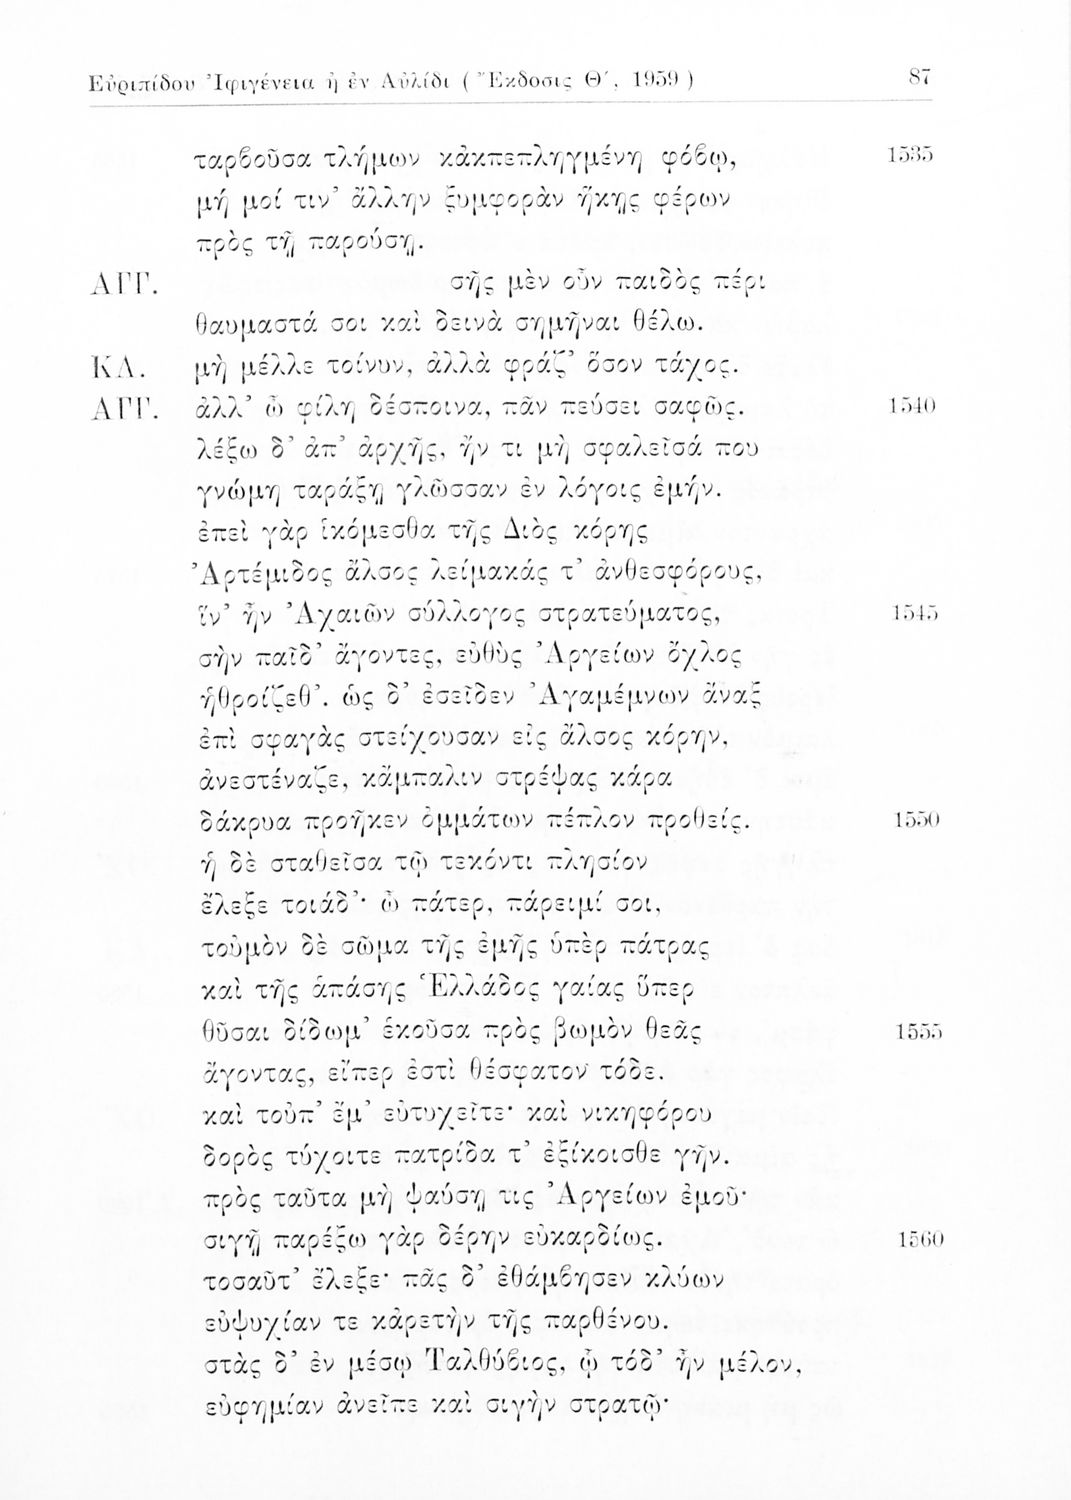 Εὐριπίδου Ἰφιγένεια ἡ ἐν Αὐλίδι ( Ἔκδοσις Θ΄, 1959 ) 87
ταρβοῦσα τλήμων κἀκπεπληγμένη φόβῳ, 1535
μή μοί τιν’ ἄλλην ξυμφορὰν ἥκῃς φέρων
πρὸς τῇ παρούσῃ.
ΑΓΓ. σῆς μὲν οὖν παιδὸς πέρι
θαυμαστά σοι καὶ δεινὰ σημῆναι θέλω.
ΚΛ. μὴ μέλλε τοίνυν, ἀλλὰ φράζ’ ὅσον τάχος.
ΑΓΓ. ἀλλ’ ὦ φίλη δέσποινα, πᾶν πεύσει σαφῶς. 1540
λέξω δ’ ἀπ’ ἀρχῆς, ἤν τι μὴ σφαλεῖσά που
γνώμη ταράξῃ γλῶσσαν ἐν λόγοις ἐμήν.
ἐπεὶ γὰρ ἱκόμεσθα τῆς Διὸς κόρης
Ἀρτέμιδος ἄλσος λείμακάς τ’ ἀνθεσφόρους,
ἵν’ ἦν Ἀχαιῶν σύλλογος στρατεύματος, 1545
σὴν παῖδ’ ἄγοντες, εὐθὺς Ἀργείων ὄχλος
ἡθροίζεθ’. ὡς δ’ ἐσεῖδεν Ἀγαμέμνων ἄναξ
ἐπὶ σφαγὰς στείχουσαν εἰς ἄλσος κόρην,
ἀνεστέναζε, κἄμπαλιν στρέψας κάρα
δάκρυα προῆκεν ὀμμάτων πέπλον προθείς. 1550
ἡ δὲ σταθεῖσα τῷ τεκόντι πλησίον
ἔλεξε τοιάδ’· ὦ πάτερ, πάρειμί σοι,
τοὐμὸν δὲ σῶμα τῆς ἐμῆς ὑπὲρ πάτρας
καὶ τῆς ἁπάσης Ἑλλάδος γαίας ὕπερ
θῦσαι δίδωμ’ ἑκοῦσα πρὸς βωμὸν θεᾶς 1555
ἄγοντας, εἴπερ ἐστὶ θέσφατον τόδε.
καὶ τοὐπ’ ἔμ’ εὐτυχεῖτε· καὶ νικηφόρου
δορὸς τύχοιτε πατρίδα τ’ ἐξίκοισθε γῆν.
πρὸς ταῦτα μὴ ψαύσῃ τις Ἀργείων ἐμοῦ·
σιγῇ παρέξω γὰρ δέρην εὐκαρδίως. 1560
τοσαῦτ’ ἔλεξε· πᾶς δ’ ἐθάμβησεν κλύων
εὐψυχίαν τε κἀρετὴν τῆς παρθένου.
στὰς δ’ ἐν μέσῳ Ταλθύβιος, ᾧ τόδ’ ἦν μέλον,
εὐφημίαν ἀνεῖπε καὶ σιγὴν στρατῷ·